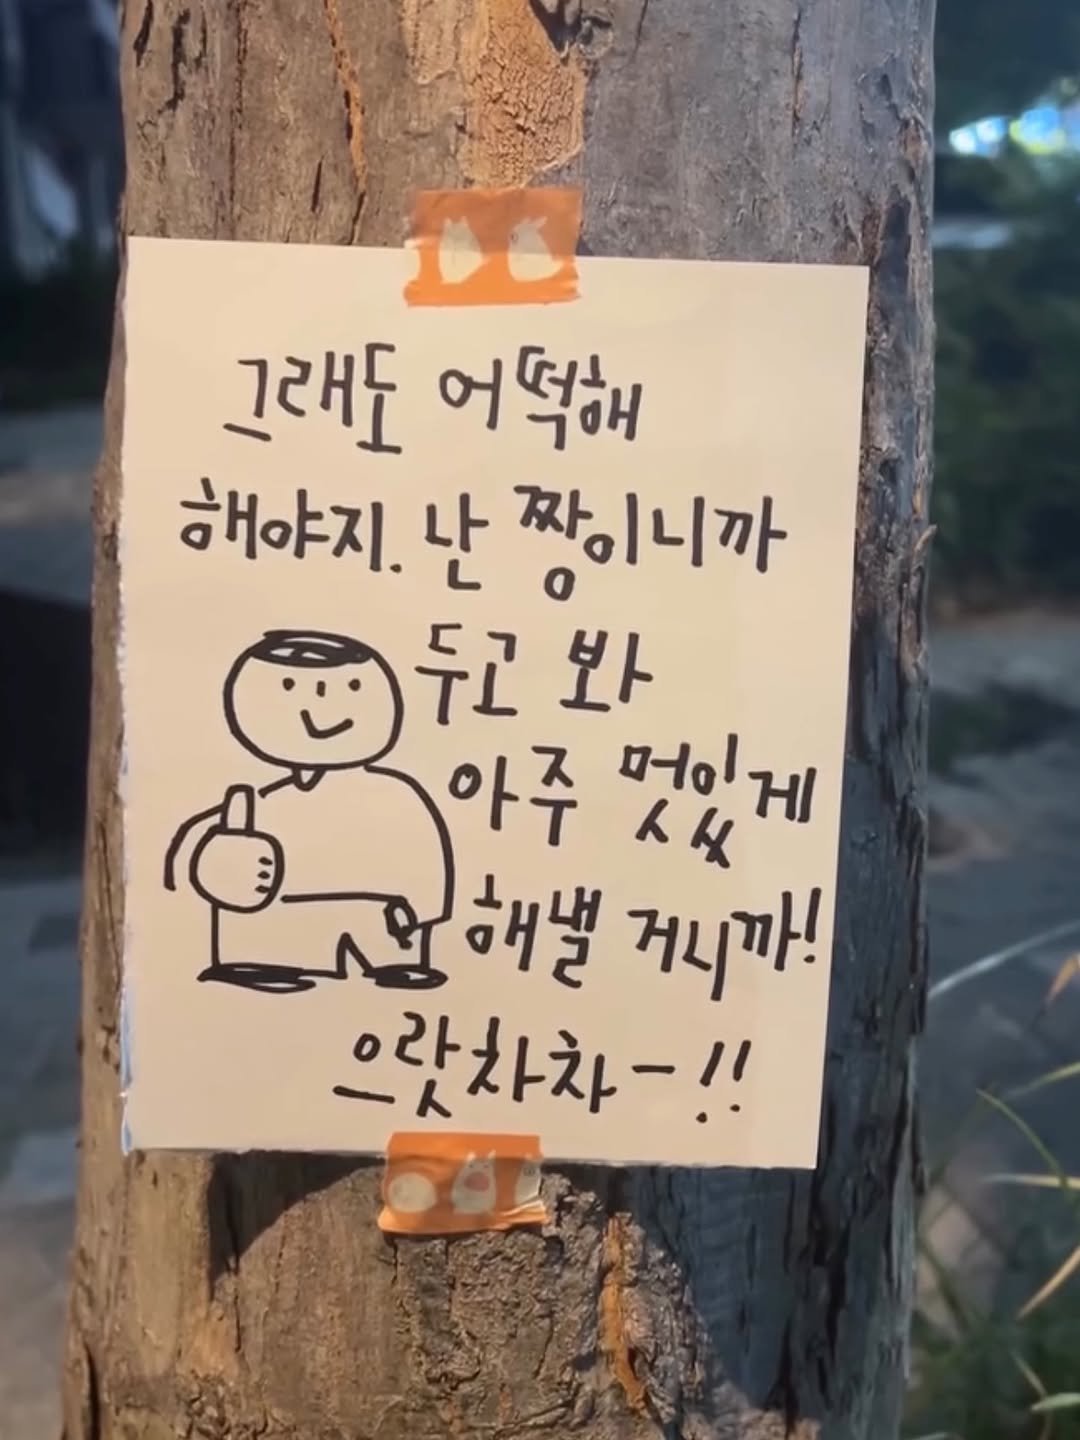 그래도 어떡해
해야지. 난 짱이니까
두고 봐
아주 멋있게
해낼 거니까!
으랏차차-!!